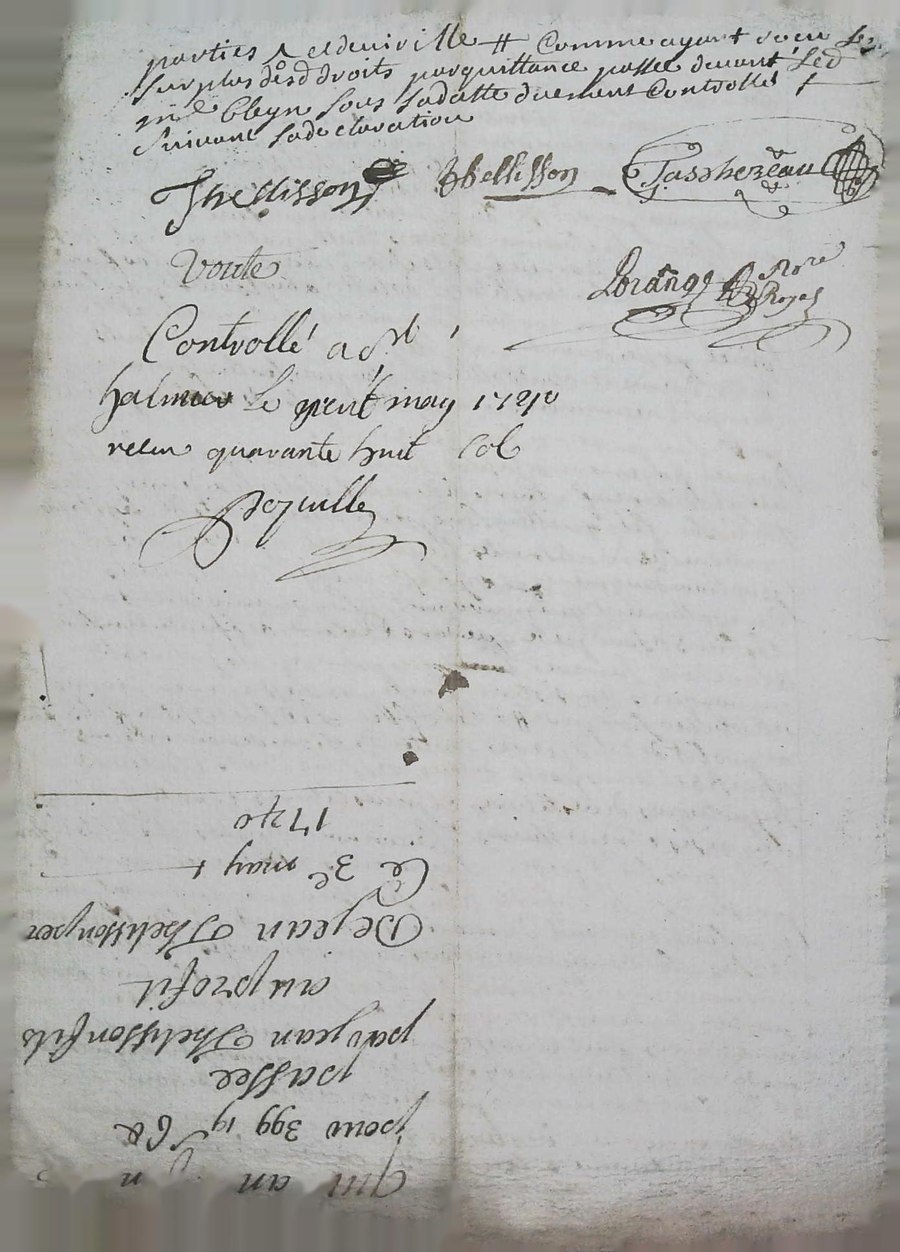 parties et deniville # Comme ayant receu Le
surplus desd droits par quittance passée devant Led
me Bleyn sous sadatte duement Controllée
suivant sadeclaration
Thellisson Thellisson Taschereau
voute
Lorange Nore Royal
Controllé a St
le may 1740
receu quarante huit sol
1740
Ce 3e may
De jean Thelisson per
au profit
par jean Thelisson fils
passee
pour 399 19